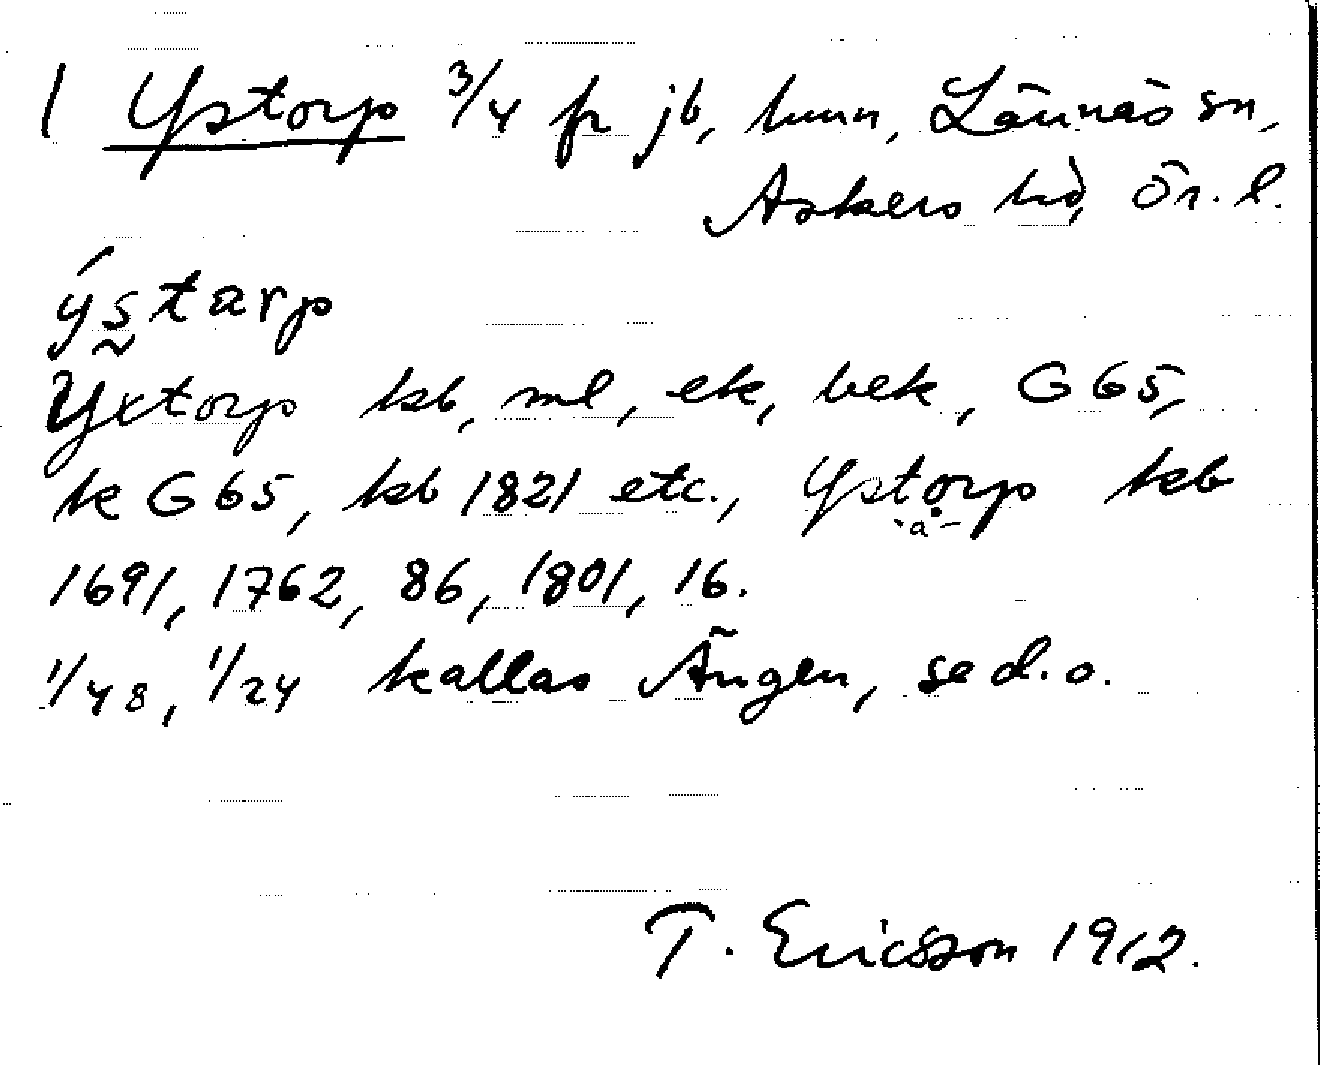 1 Ystorp 3/4 fr jb, hmn, Lännäs sn,
Askers hd, Ör. l.
ýstarp
Yxtorp kb, ml, ek, bek, G65,
k G65, kb 1821 etc., Ystorp kb
-a-
1691, 1762, 86, 1801, 16.
1/48, 1/24 kallas Ängen, se d.o.
T. Ericsson 1912.